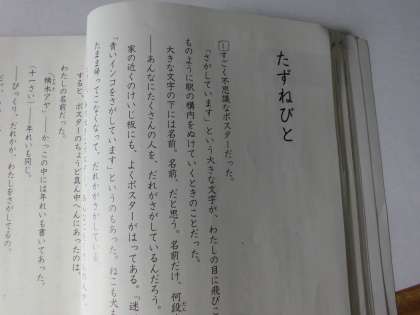 たずねびと
1 すごく不思議なポスターだった。
「さがしています」という大きな文字が、わたしの目に飛びこ
ものように駅の構内をぬけていくときのことだった。
大きな文字の下には名前、名前、だと思う。名前だけ、何段
――あんなにたくさんの人を、だれがさがしているんだろう。
家の近くのけいじ板にも、よくポスターがはってある。「迷
「青いインコをさがしています」というのもあった。ねこも犬も
たまま帰ってこなくなって、だれかがさがしている
すると、ポスターのちょうど真ん中へんにあったのは、
わたしの名前だった。
「楠木アヤ」――かっこの中には年れいも書いてあった。
(十一さい)――年れいも同じ。
――びっくり。だれかが、わたしをさがしてるの。